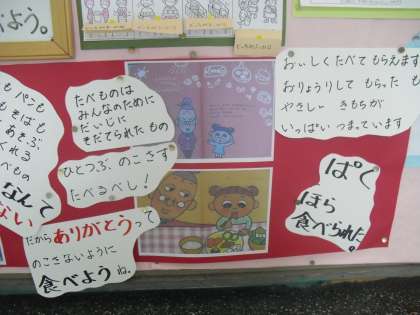 よう。
たべものは
みんなのために
だいじに
そだてられた もの
ひとつぶ のこさず
たべるべし！
だから ありがとう って
のこさないように
食べよう ね。
おいしく たべて もらえます
おりょうりして もらった も
やさしい きもちが
いっぱい つまっています
ぱく
ほら
食べられた。
も パンも
も そばも
あそぶ
くれる
べもの
なんて
ない